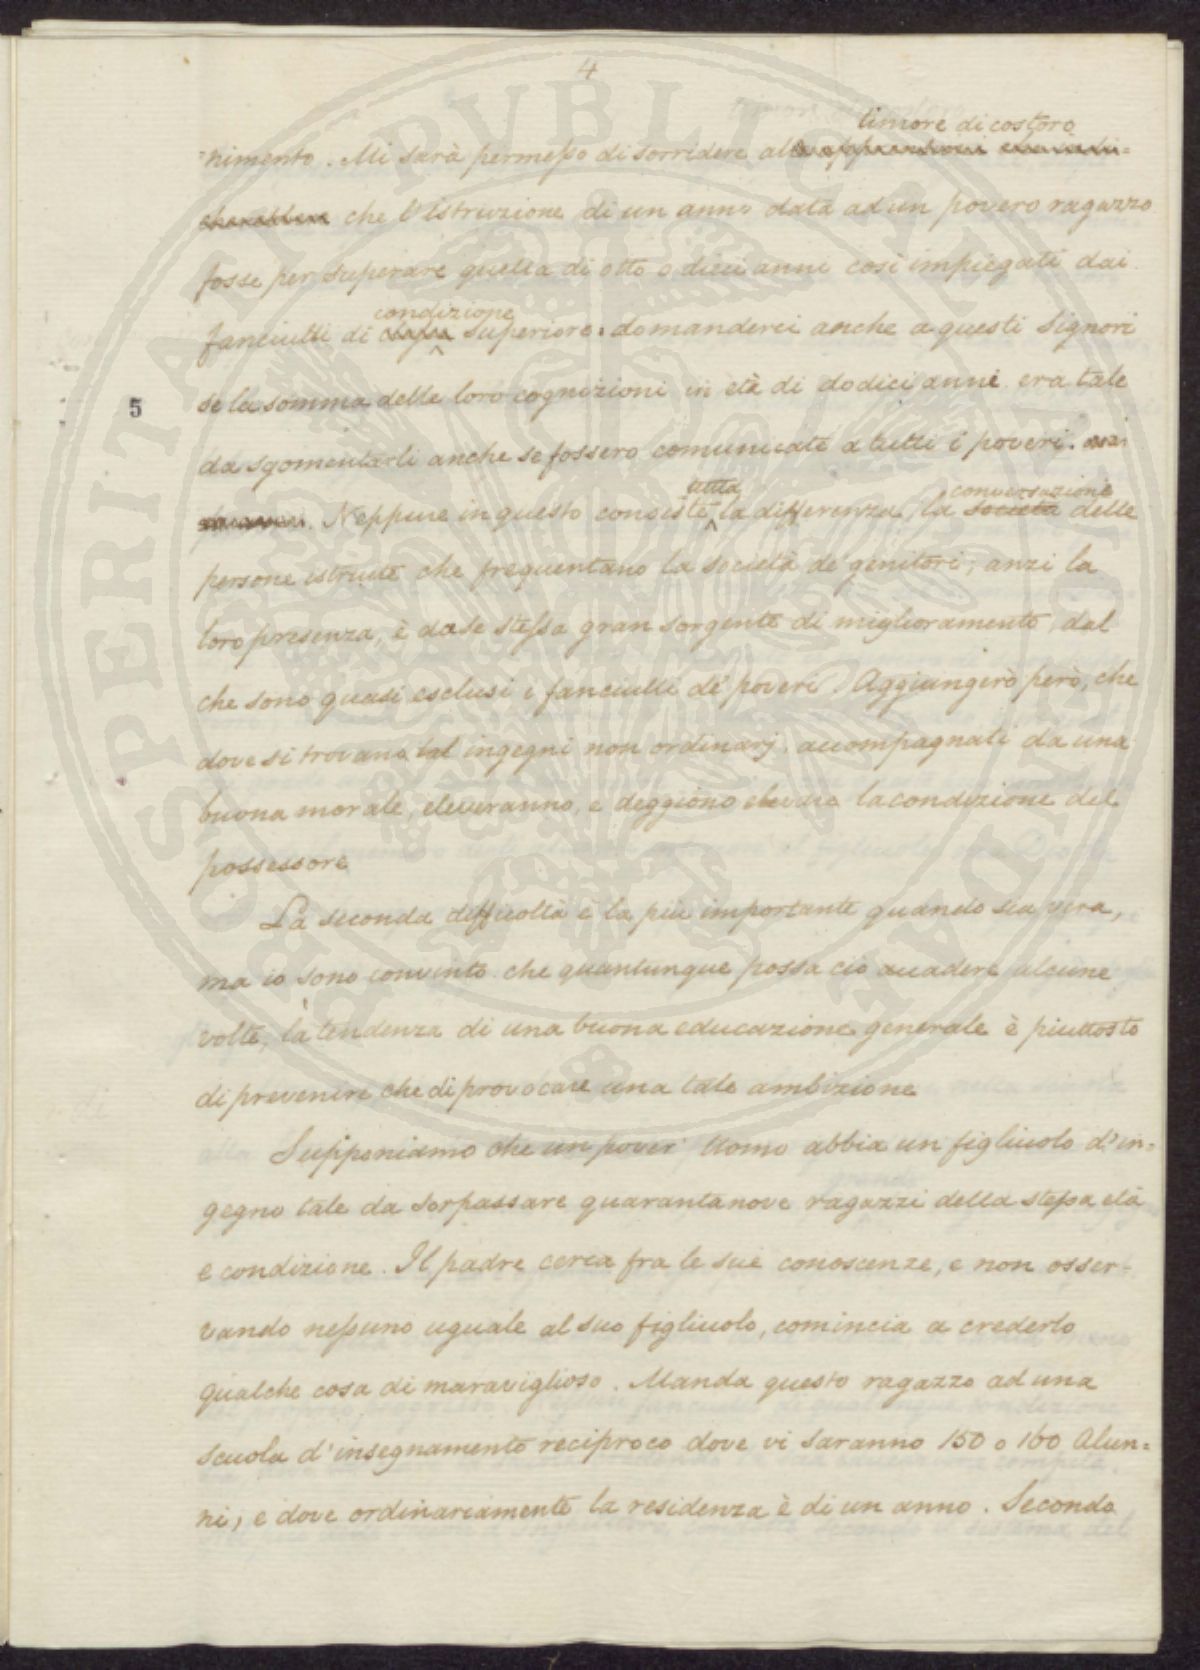 4
timore di costoro
nimento. Mi sarà permesso di sorridere al
che l'istruzione di un anno data ad un povero ragazzo
fosse per superare quella di otto o dieci anni così impiegati dai
condizione
fanciulli di classe superiore. domanderei anche a questi Signori
se la somma delle loro cognizioni in età di dodici anni era tale
5
da sgomentarli anche se fossero comunicate a tutti i poveri.
tutta conversazione
Neppure in questo consiste la differenza, la società delle
persone istruite che frequentano la società de' genitori; anzi la
loro presenza, è da se stessa gran sorgente di miglioramento, dal
che sono quasi esclusi i fanciulli de' poveri. Aggiungerò però, che
dove si trovano tal ingegni non ordinarj, accompagnati da una
buona morale, eleveranno, e deggiono elevare la condizione del
possessore
La seconda difficoltà è la più importante quando sia vera,
ma io sono convinto che quantunque possa ciò accadere alcune
volte, la tendenza di una buona educazione generale è piuttosto
di prevenire che di provocare una tale ambizione
Supponiamo che un pover' Uomo abbia un figliuolo d'in=
gegno tale da sorpassare quarantanove ragazzi della stessa età
e condizione. Il padre cerca fra le sue conoscenze, e non osser-
vando nessuno uguale al suo figliuolo, comincia a crederlo
qualche cosa di maraviglioso. Manda questo ragazzo ad una
scuola d'insegnamento reciproco dove vi saranno 150 o 160 Alun=
ni, e dove ordinariamente la residenza è di un anno. Secondo
PROSPERITATI PVBLICAE AVGENDAE